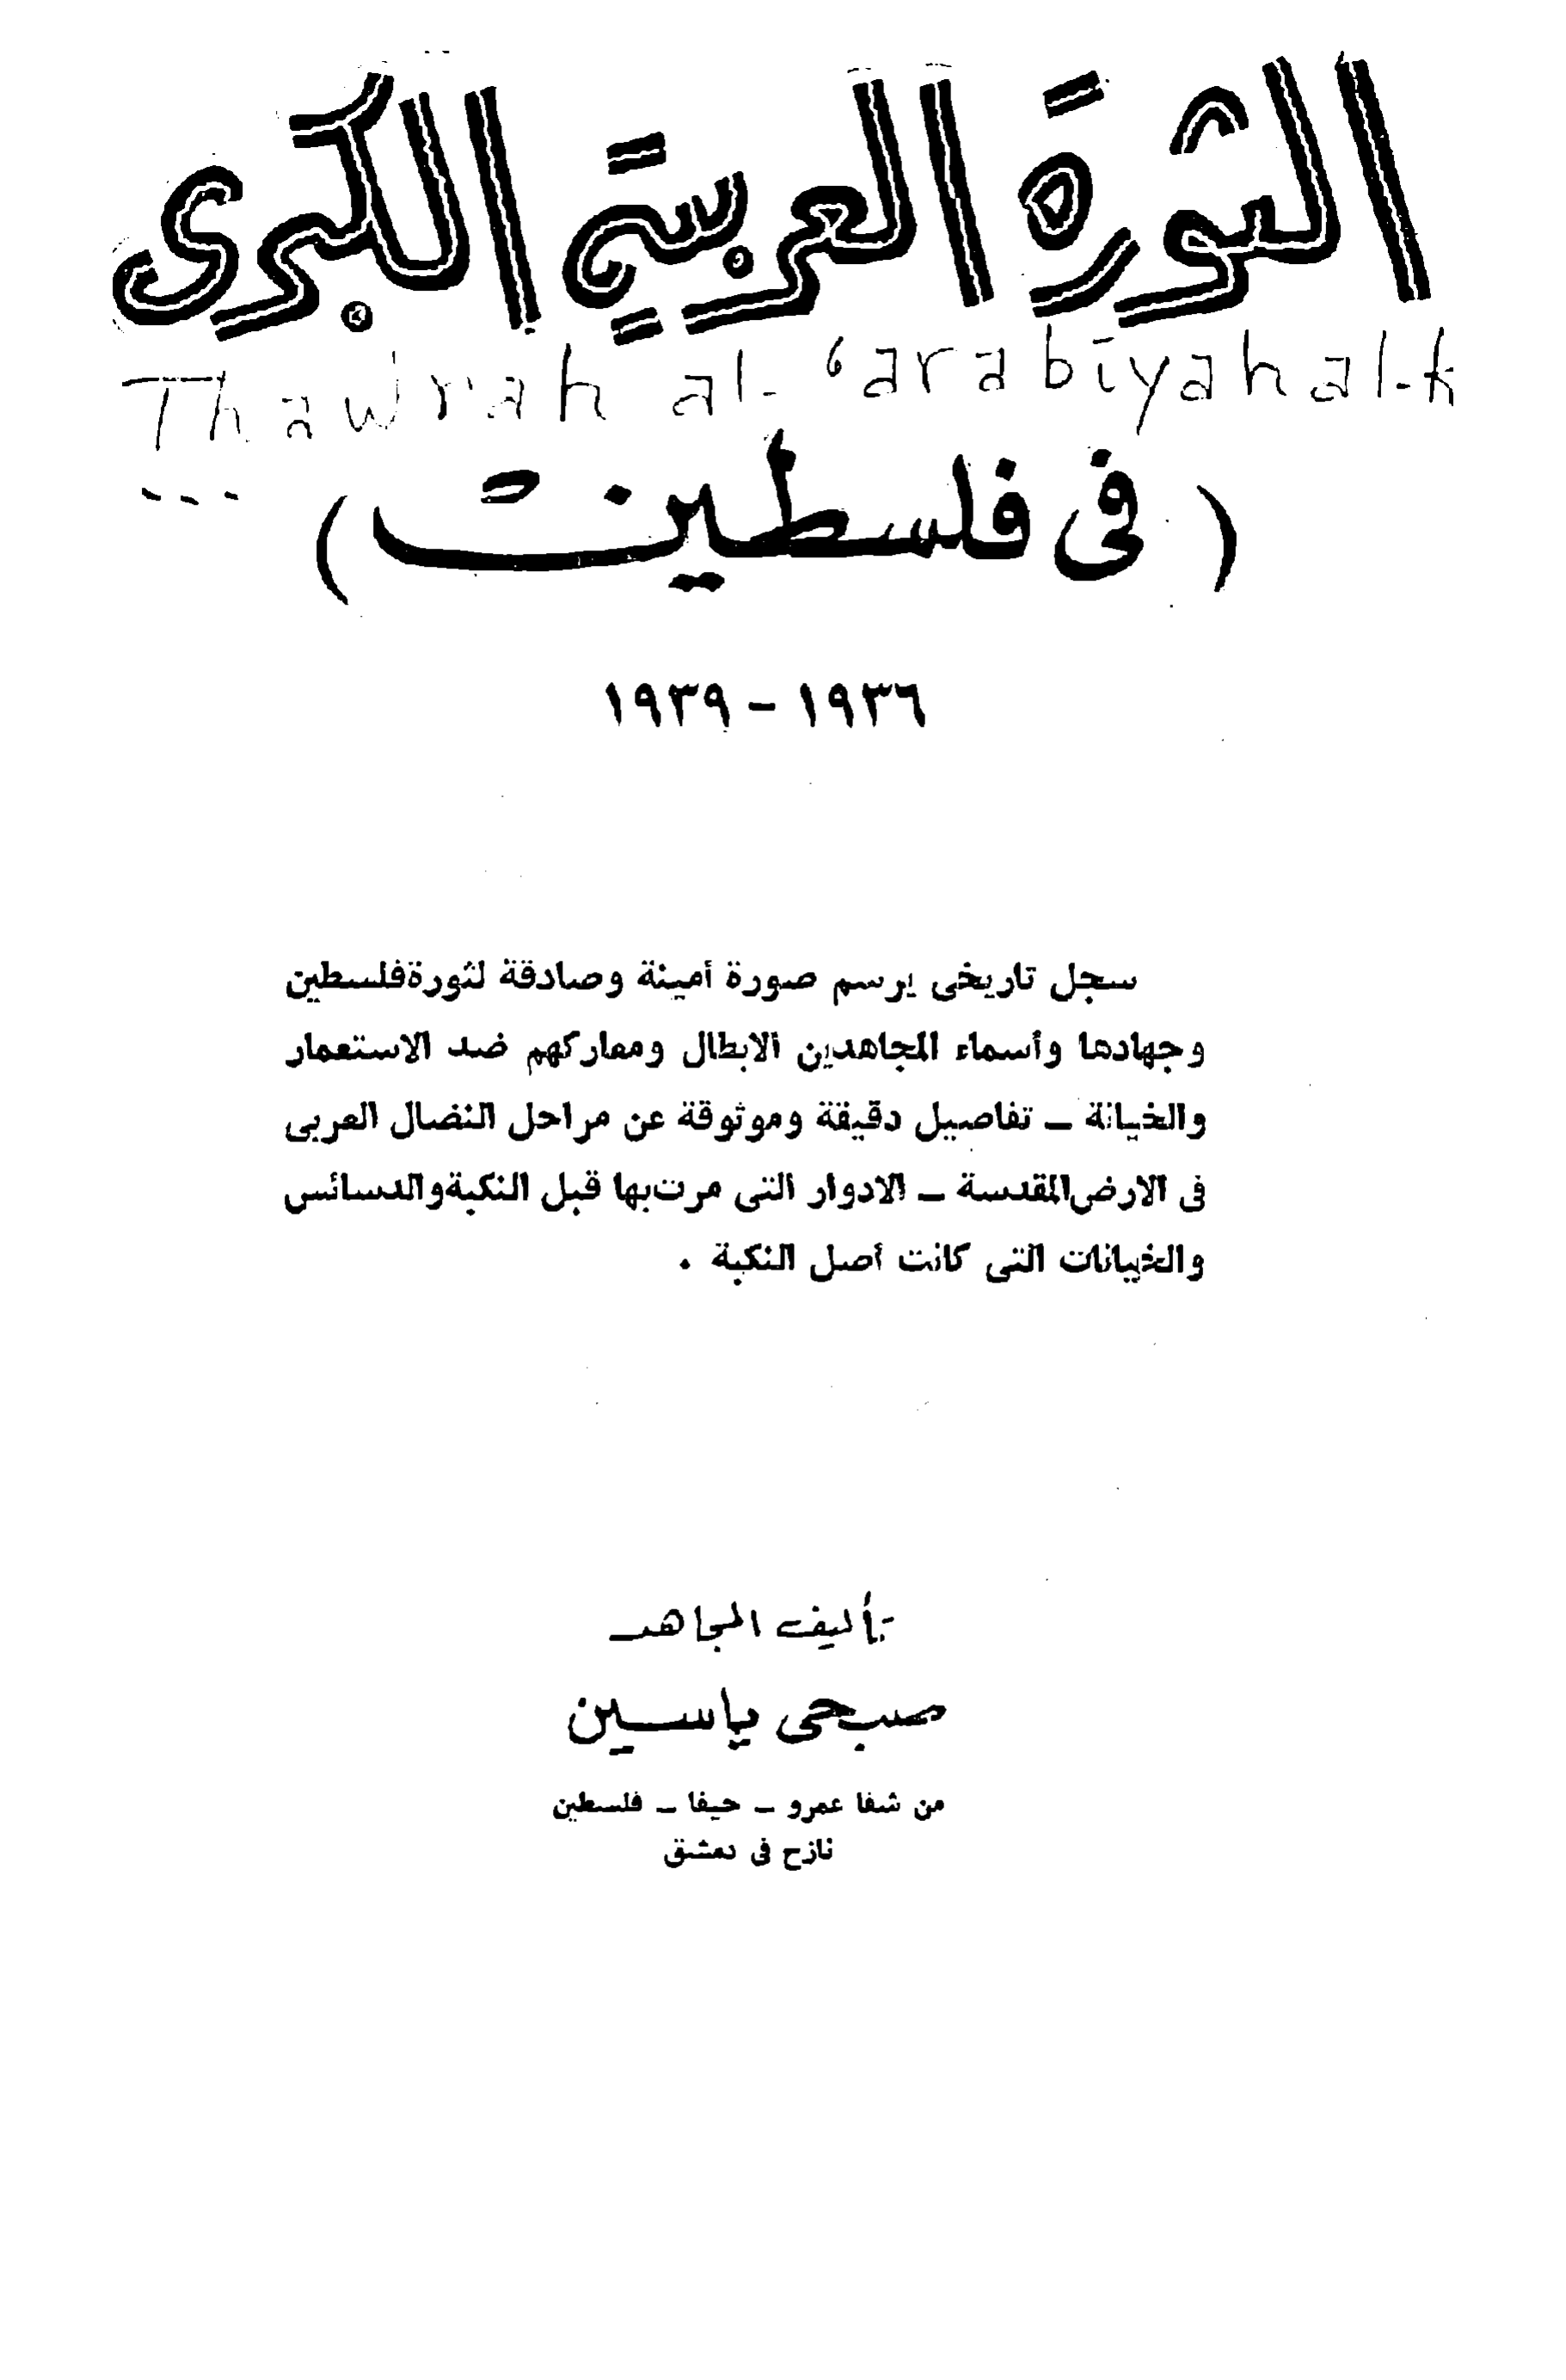 الثورة العربية الكبرى
Thawrah al-‘arabīyah al-k
...
(فى فلسطين)
١٩٣٦ - ١٩٣٩
سجل تاريخى يرسم صورة أمينة وصادقة لثورة فلسطين
وجهادها وأسماء المجاهدين الابطال ومعاركهم ضد الاستعمار
والخيانة ــ تفاصيل دقيقة وموثوقة عن مراحل النضال العربى
فى الارض المقدسة ــ الادوار التى مرت بها قبل النكبة والدسائس
والخيانات التى كانت أصل النكبة .
تأليف المجاهد
صبحى ياسين
من شفا عمرو ــ حيفا ــ فلسطين
نازح فى دمشق